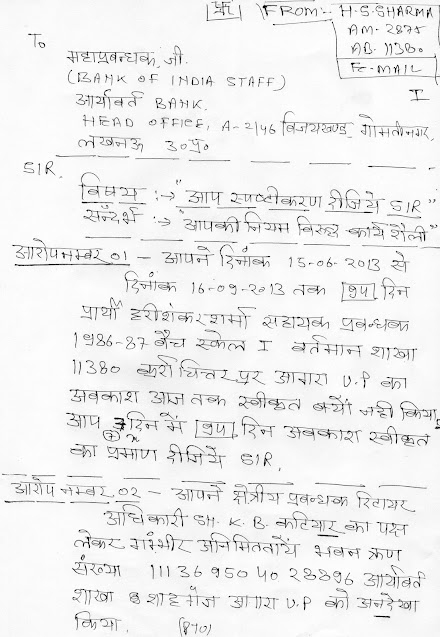 卐 FROM:- H.S.SHARMA
AM-2875
AB.11380
FE-MAIL
I
To
महाप्रबन्धक जी.
(BANK OF INDIA STAFF)
आर्यावर्त BANK.
HEAD OFFICE, A-2/46 विजयखण्ड, गोमतीनगर,
लखनऊ उ०प्र०
SIR.
विषय :→ "आप स्पष्टीकरण दीजिये SIR"
सन्दर्भ :→ "आपकी नियम विरुद्ध कार्य शैली"
आरोप नम्बर 01 – आपने दिनांक 15-06-2013 से
दिनांक 16-09-2013 तक 94 दिन
प्रार्थी हरीशंकर शर्मा सहायक प्रबन्धक
1986-87 बैच स्केल I वर्तमान शाखा
11380 पर आगरा U.P का
अवकाश आज तक स्वीकृत क्यों नही किया,
आप 7 दिन में 94 दिन अवकाश स्वीकृत
का प्रमाण दीजिये SIR.
आरोप नम्बर 02 – आपने क्षेत्रीय प्रबन्धक रिटायर
अधिकारी SH. K. B. कटियार का पक्ष
लेकर गम्भीर अनिमिततायें भवन ऋण
संख्या 11136950 40 28896 आर्यावर्त
शाखा शाहगंज आगरा U.P को अनदेखा
किया. (PTO)